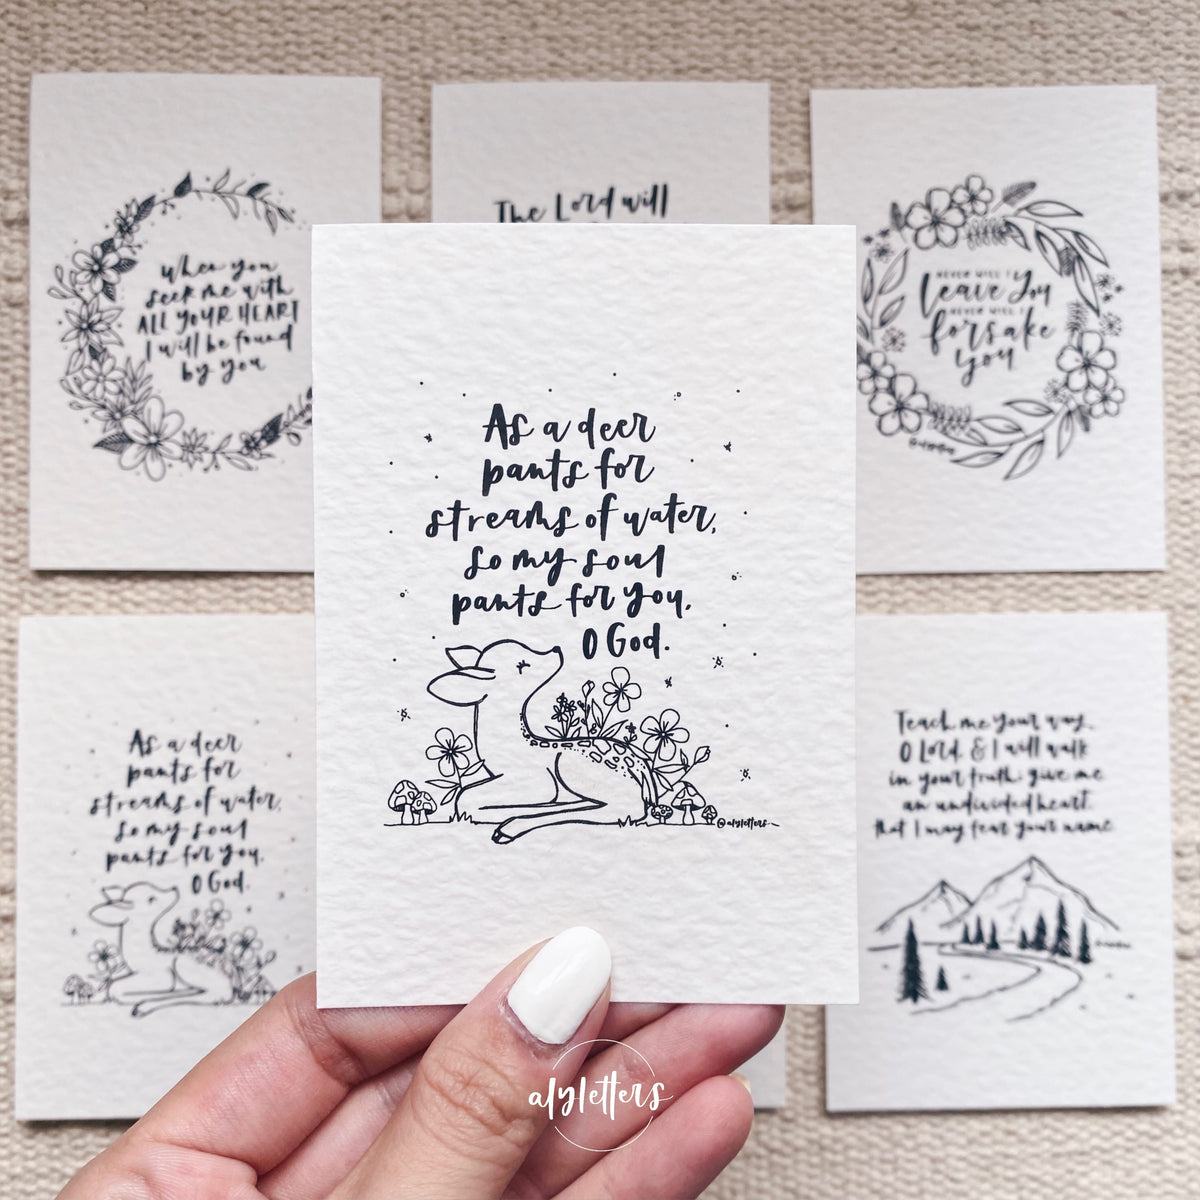 When you
seek me with
ALL YOUR HEART
I will be found
by you
The Lord will
NEVER WILL I
leave You
NEVER WILL I
forsake
you
As a deer
pants for
streams of water,
so my soul
pants for you,
O God.
@alyletters
As a deer
pants for
streams of water,
so my soul
pants for you,
O God.
Teach me your way,
O Lord, & I will walk
in your truth; give me
an undivided heart,
that I may fear your name
alyletters